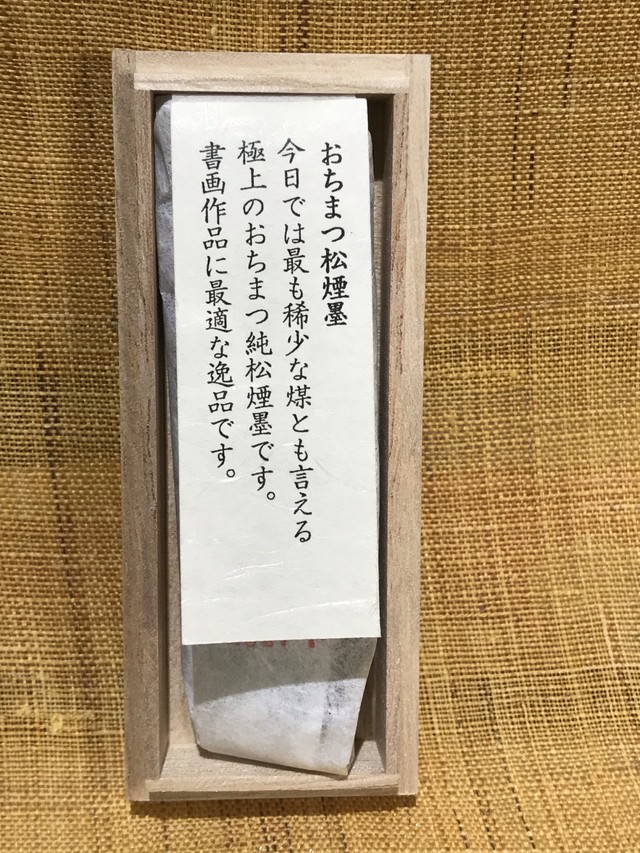 おちまつ松煙墨
今日では最も稀少な煤とも言える
極上のおちまつ純松煙墨です。
書画作品に最適な逸品です。